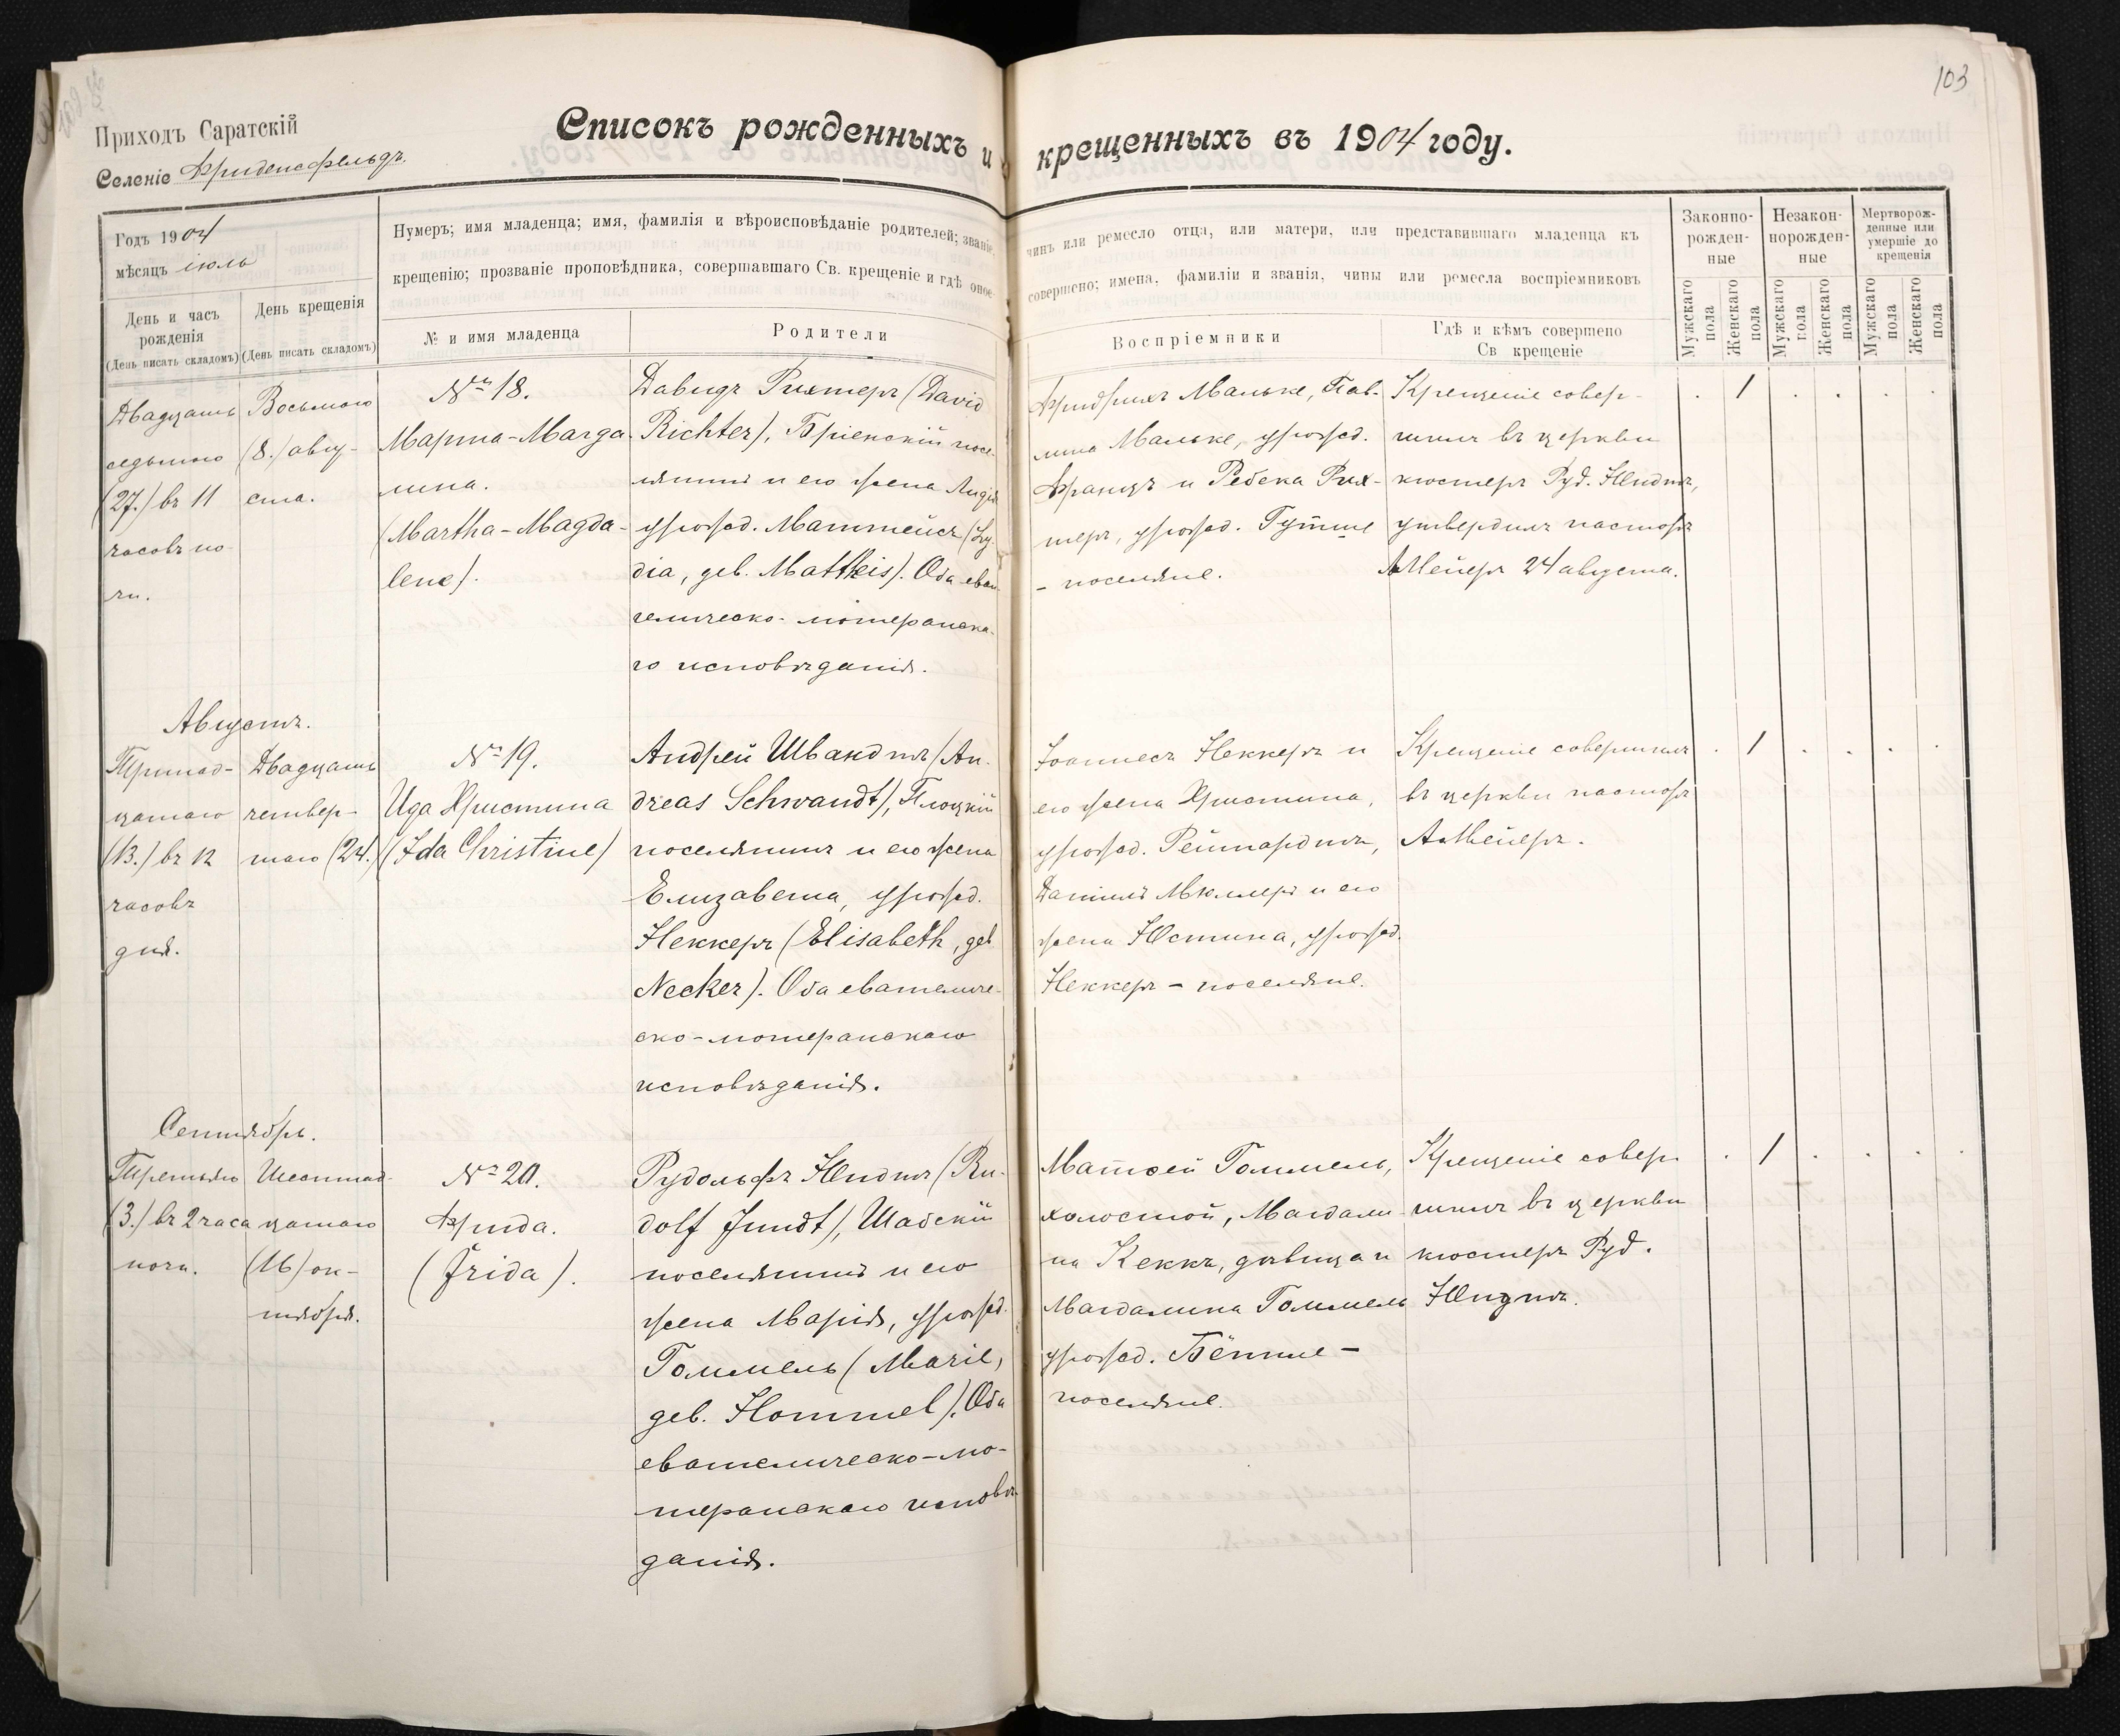 103
Приходъ Саратскій
Селеніе Фриденсфельдъ.
Списокъ рожденныхъ и крещенныхъ въ 1904 году.
Годъ 1904
мѣсяцъ іюль
День и часъ
рожденія
(День писать складомъ)
День крещенія
(День писать складомъ)
Нумеръ; имя младенца; имя, фамилія и вѣроисповѣданіе родителей; званіе,
крещенію; прозваніе проповѣдника, совершавшаго Св. крещеніе и гдѣ оное
№ и имя младенца
Родители
чинъ или ремесло отца, или матери, или представившаго младенца къ
совершено; имена, фамиліи и званія, чины или ремесла воспріемниковъ
Воспріемники
Гдѣ и кѣмъ совершено
Св крещеніе
Законно-
рожден-
ные
Незакон-
норожден-
ные
Мертворож-
денные или
умершіе до
крещенія
Мужскаго
пола
Женскаго
пола
Мужскаго
пола
Женскаго
пола
Мужскаго
пола
Женскаго
пола
Двадцать
седьмого
(27.) въ 11
часовъ но-
чи.
Восьмого
(8.) авгу-
ста.
№ 18.
Марта-Магда-
лина.
(Martha-Magda-
lene).
Давидъ Рихтеръ (David
Richter), Бріенскій посе-
лянинъ и его жена Лидія
урожд. Маттейсъ (Ly-
dia, geb. Mattheis). Оба еван-
гелическо-лютеранска-
го исповѣданія.
Фридрихъ Мальке, Пав-
лина Мальке, урожд.
Францъ и Ребека Рих-
теръ, урожд. Гутше
- поселяне.
Крещеніе совер-
шилъ въ церкви
кюстеръ Руд. Юндтъ,
утвердилъ пасторъ
А.Мейеръ 24 августа.
. 1 . . . .
Августъ.
Тринад-
цатаго
(13.) въ 12
часовъ
дня.
Двадцать
четвер-
таго (24.)
№ 19.
Ида Христина
(Ida Christine)
Андрей Швандтъ (An-
dreas Schwandt), Плоцкій
поселянинъ и его жена
Елизавета, урожд.
Неккеръ (Elisabeth, geb
Necker). Оба евангеличе-
ско-лютеранскаго
исповѣданія.
Іоаннесъ Неккеръ и
его жена Христина,
урожд. Рейнгардтъ,
Даніилъ Мюллеръ и его
жена Юстина, урожд.
Неккеръ - поселяне.
Крещеніе совершилъ
въ церкви пасторъ
А.Мейеръ.
. 1 . . . .
Сентябрь.
Третьяго
(3.) въ 2 часа
ночи.
Шестнад-
цатаго
(16) ок-
тября.
№ 20.
Фрида.
(Frida).
Рудольфъ Юндтъ (Ru-
dolf Jundt), Шабскій
поселянинъ и его
жена Марія, урожд.
Гоммель (Marie,
geb. Hommel). Оба
евангелическо-лю-
теранскаго исповѣ-
данія.
Матѳей Гоммель,
холостой, Магдали-
на Кеккъ, дѣвица и
Магдалина Гоммель
урожд. Бётше -
поселяне.
Крещеніе совер-
шилъ въ церкви
кюстеръ Руд.
Юндтъ.
. 1 . . . .